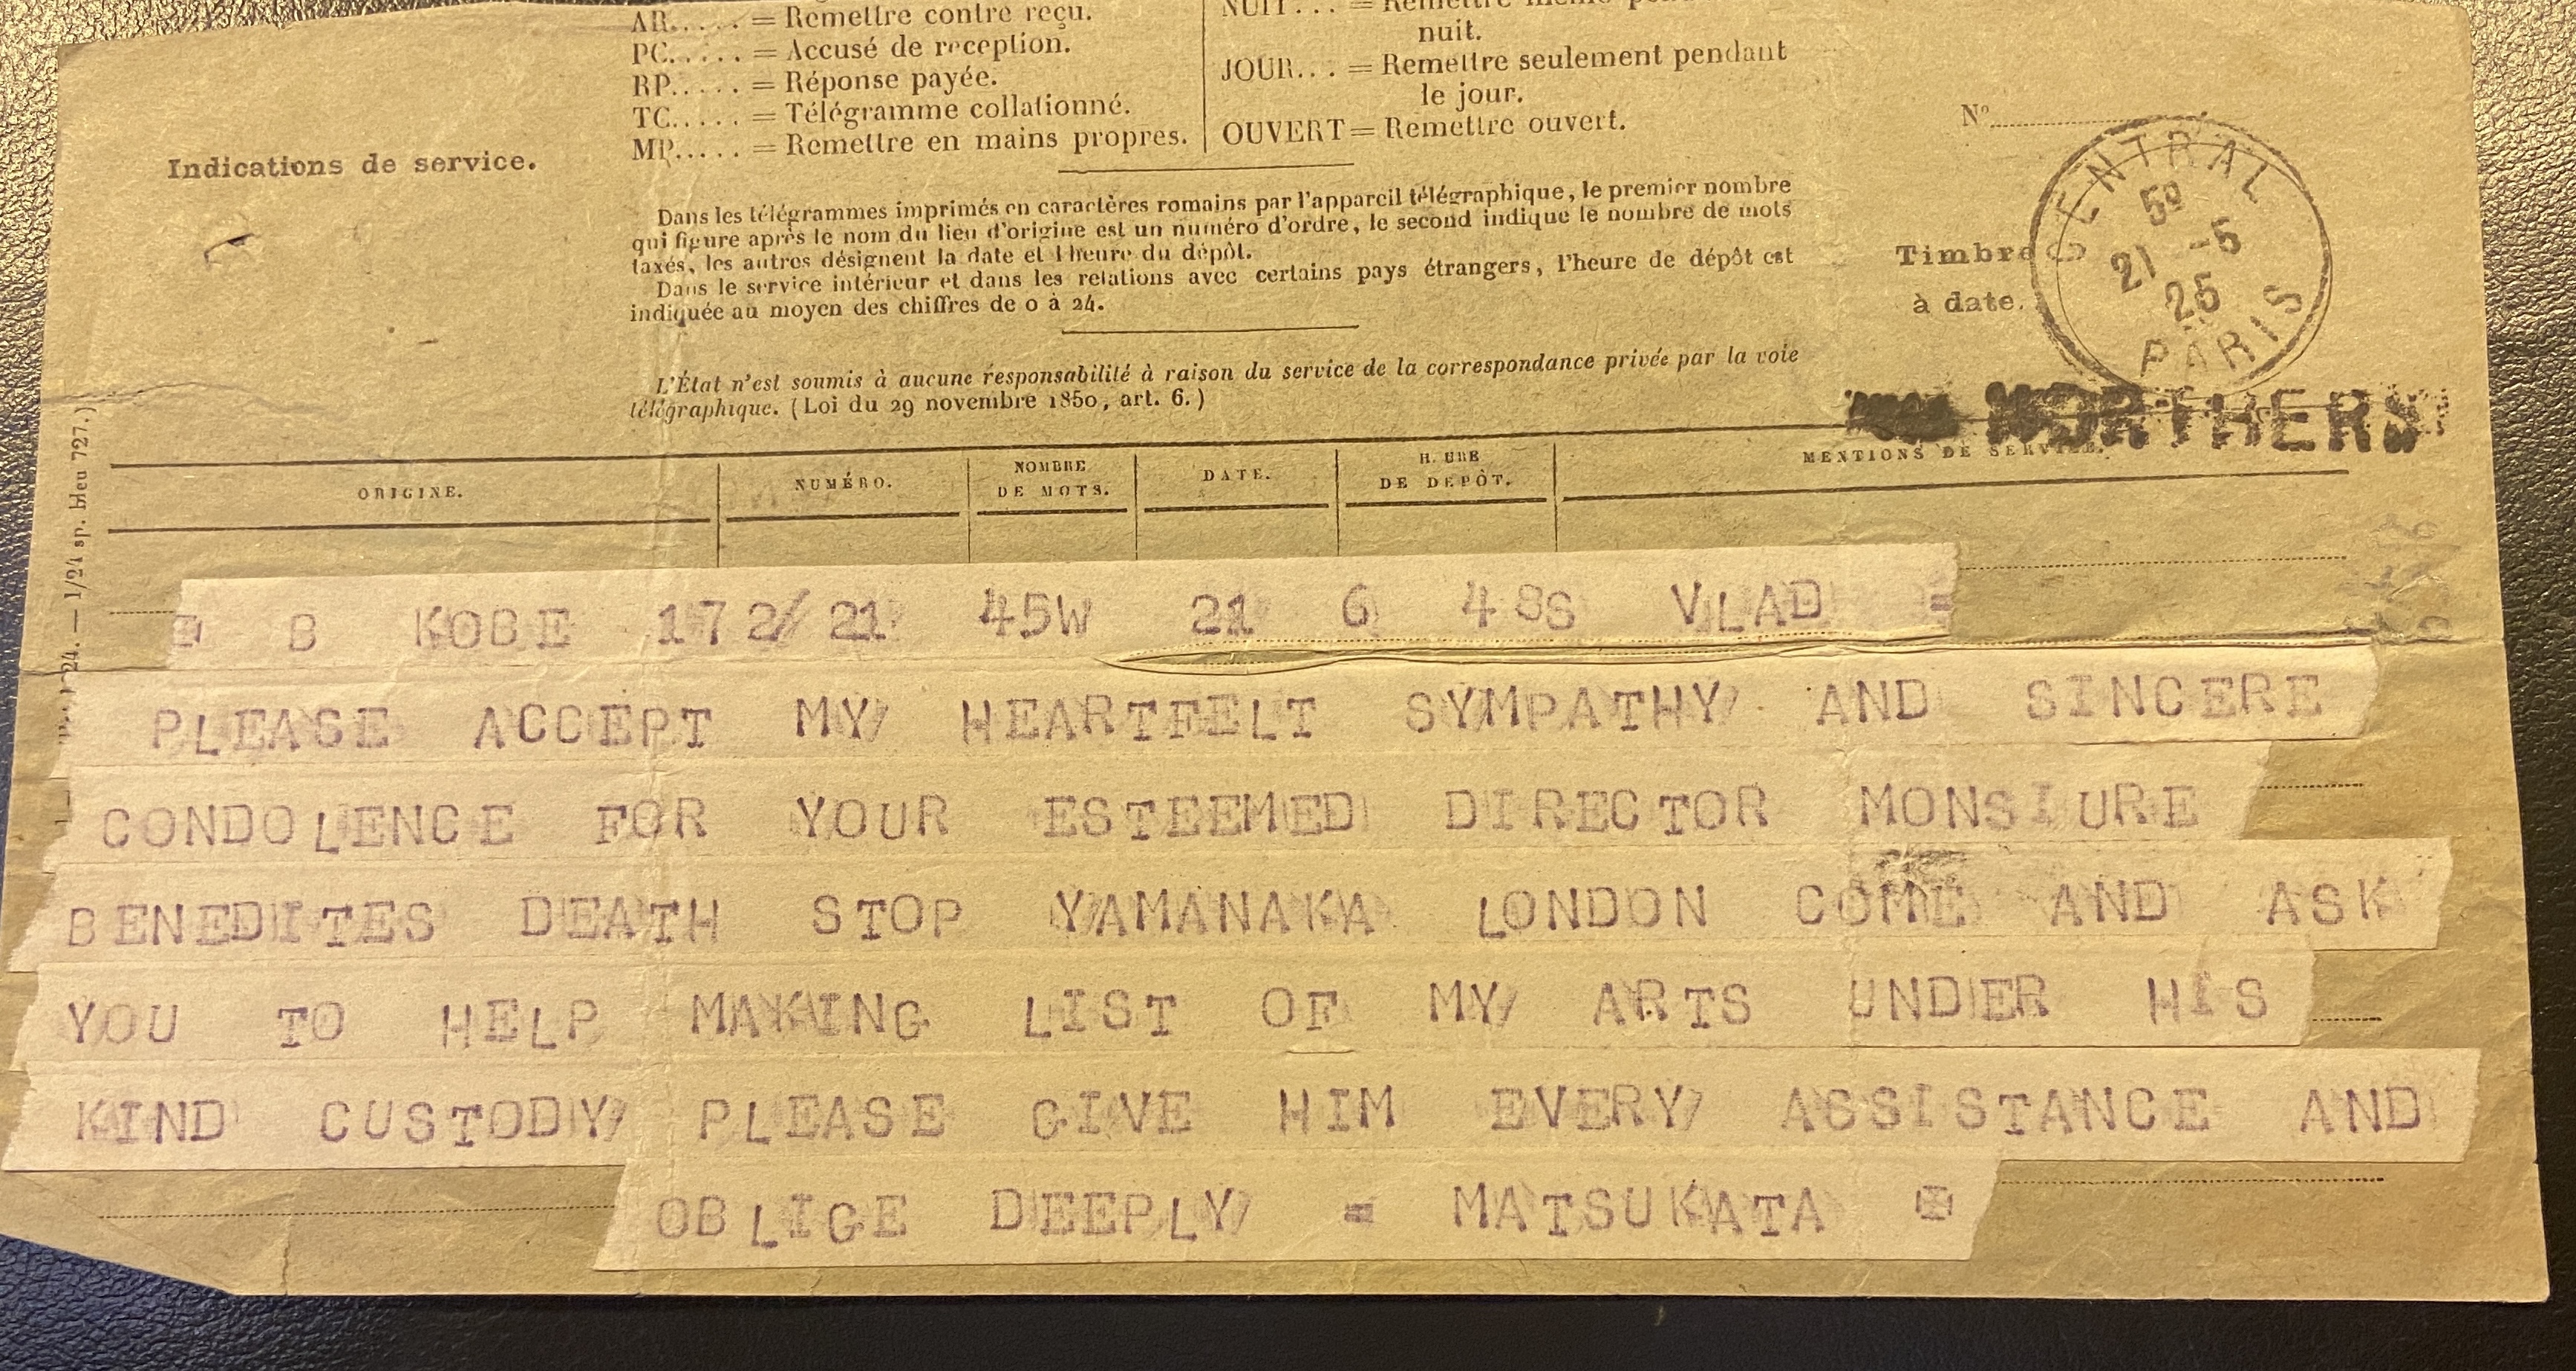 AR..... = Remettre contre reçu.
PC..... = Accusé de reception.
RP..... = Réponse payée.
TC..... = Télégramme collationné.
MP..... = Remettre en mains propres.
NUIT... = Remettre même
nuit.
JOUR... = Remettre seulement pendant
le jour.
OUVERT = Remettre ouvert.
Indications de service.
Dans les télégrammes imprimés en caractères romains par l'appareil télégraphique, le premier nombre
qui figure après le nom du lieu d'origine est un numéro d'ordre, le second indique le nombre de mots
taxés, les autres désignent la date et l'heure du dépôt.
Dans le service intérieur et dans les relations avec certains pays étrangers, l'heure de dépôt est
indiquée au moyen des chiffres de 0 à 24.
L'État n'est soumis à aucune responsabilité à raison du service de la correspondance privée par la voie
télégraphique. (Loi du 29 novembre 1850, art. 6.)
N°
Timbre
à date.
CENTRAL
21 -5
25
PARIS
NORTHERN
24. — 1/24 sp. bleu 727.)
ORIGINE.
NUMÉRO.
NOMBRE
DE MOTS.
DATE.
HEURE
DE DÉPÔT.
MENTIONS DE SERVICE.
B KOBE 172/21 45W 21 6 48S VLAD =
PLEASE ACCEPT MY HEARTFELT SYMPATHY AND SINCERE
CONDOLENCE FOR YOUR ESTEEMED DIRECTOR MONSIURE
BENEDITES DEATH STOP YAMANAKA LONDON COME AND ASK
YOU TO HELP MAKING LIST OF MY ARTS UNDER HIS
KIND CUSTODY PLEASE GIVE HIM EVERY ASSISTANCE AND
OBLIGE DEEPLY = MATSUKATA